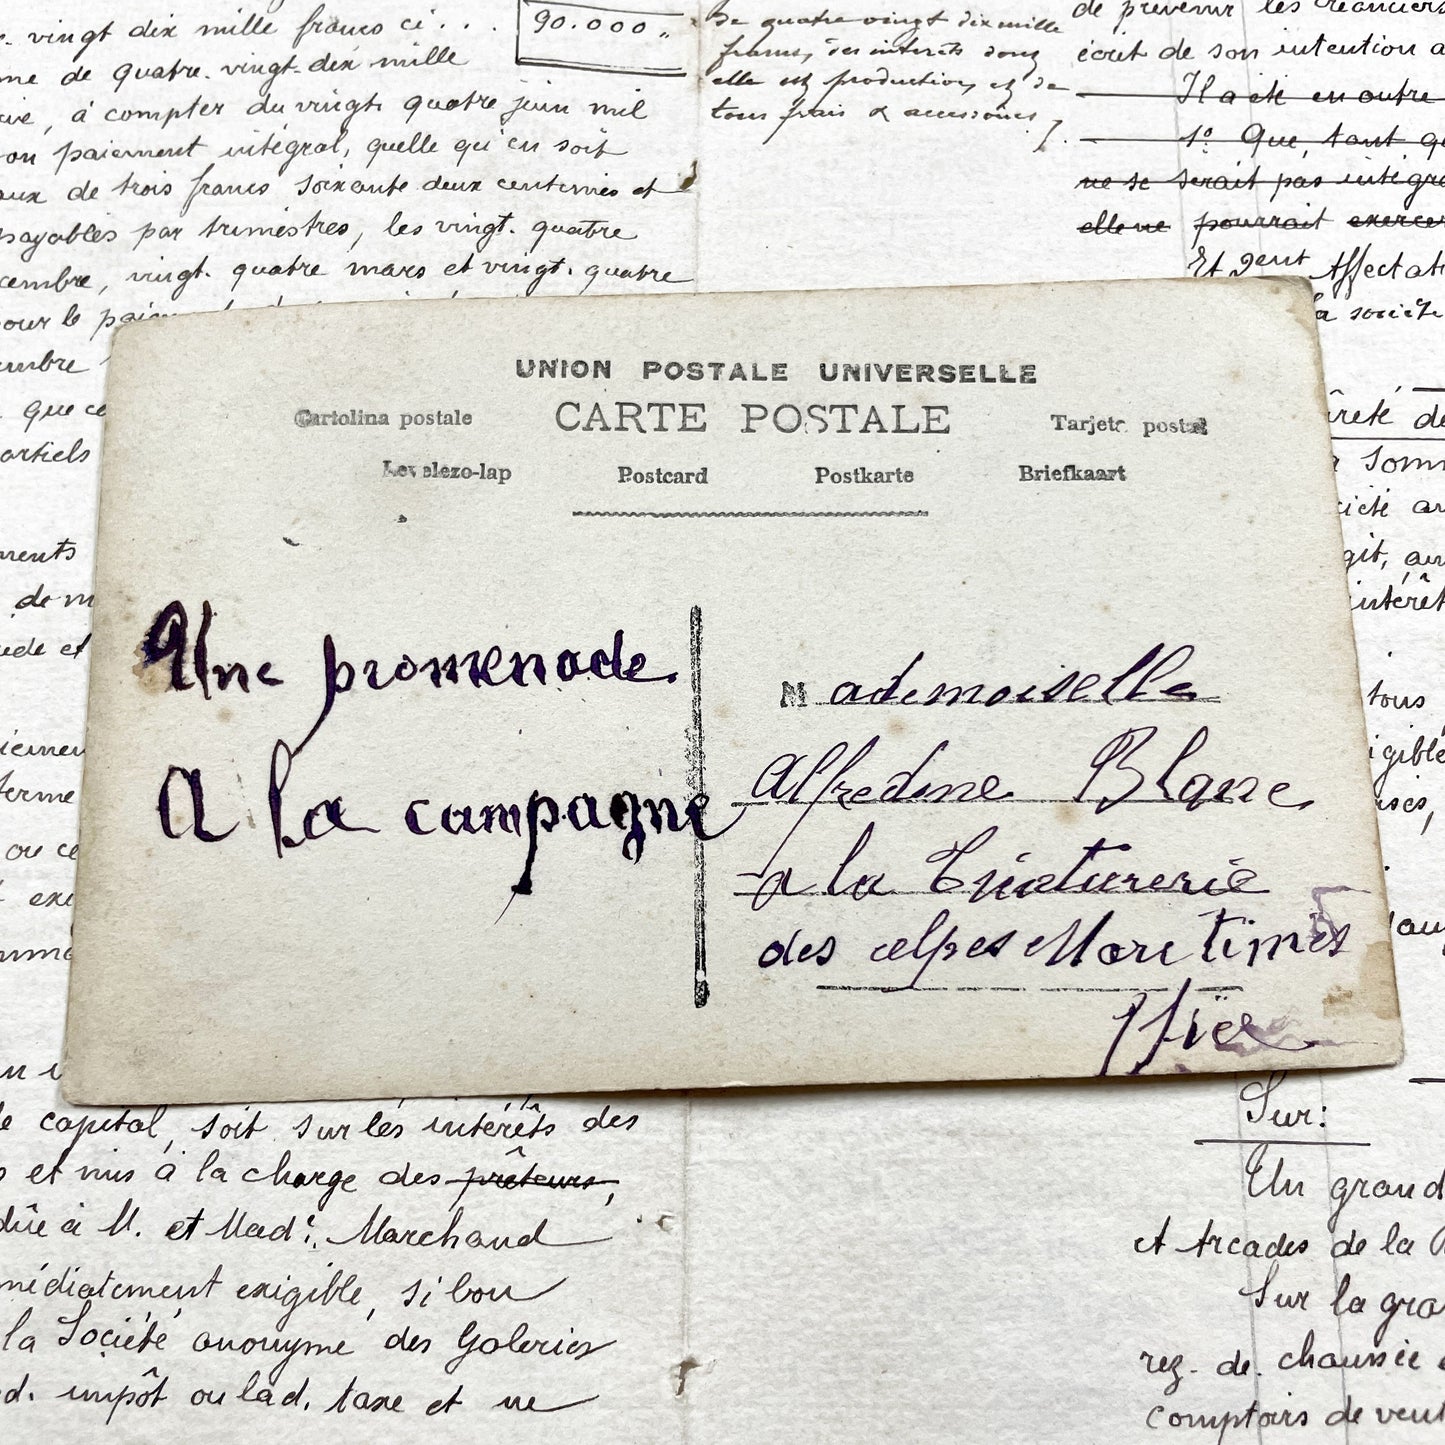 vingt dix mille francs ci . . .
90.000 „
me de quatre-vingt-dix mille
à compter du vingt quatre juin mil
paiement intégral, quelle qu'en soit
aux de trois francs soixante deux centimes et
payables par trimestres, les vingt-quatre
cembre, vingt-quatre mars et vingt-quatre
our le
embre
que ce
artiels
ments
de m
iede et
iemen
terme
ou ce
exi
de quatre vingt dix mille
francs, des interets dont
elle est production, et de
tous frais & accessoires
de prévenir les créanciers
écrit de son intention a
Il a été en outre
1° Que, tant qu
ne se serait pas intégra
elle ne pourrait exercer
Et 2ent Affectati
a société
ûreté de
somm
ciété an
git, au
intérêt
tous
igible
ises,
UNION POSTALE UNIVERSELLE
Cartolina postale CARTE POSTALE Tarjeta postal
Levelezo-lap Postcard Postkarte Briefkaart
Une promenade
A la campagne
Mademoiselle
Alfredine Blanc
a la
des alpes Maritimes
le capital, soit sur les intérêts des
s et mis à la charge des prêteurs,
dûe à M. et Made. Marchand
médiatement exigible, si bon
la Société anonyme des Galeries
d. impôt ou lad. taxe et ne
Sur:
Un grand
et Arcades de la
Sur la gra
rez-de-chaussée
comptoirs de vent